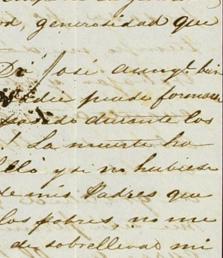 generosidad que
Dr José
die puede formar
durante los
! La muerte ha
lló y si no hubiese
de mis Padres que
los pobres, no me
de sobrellevar mi